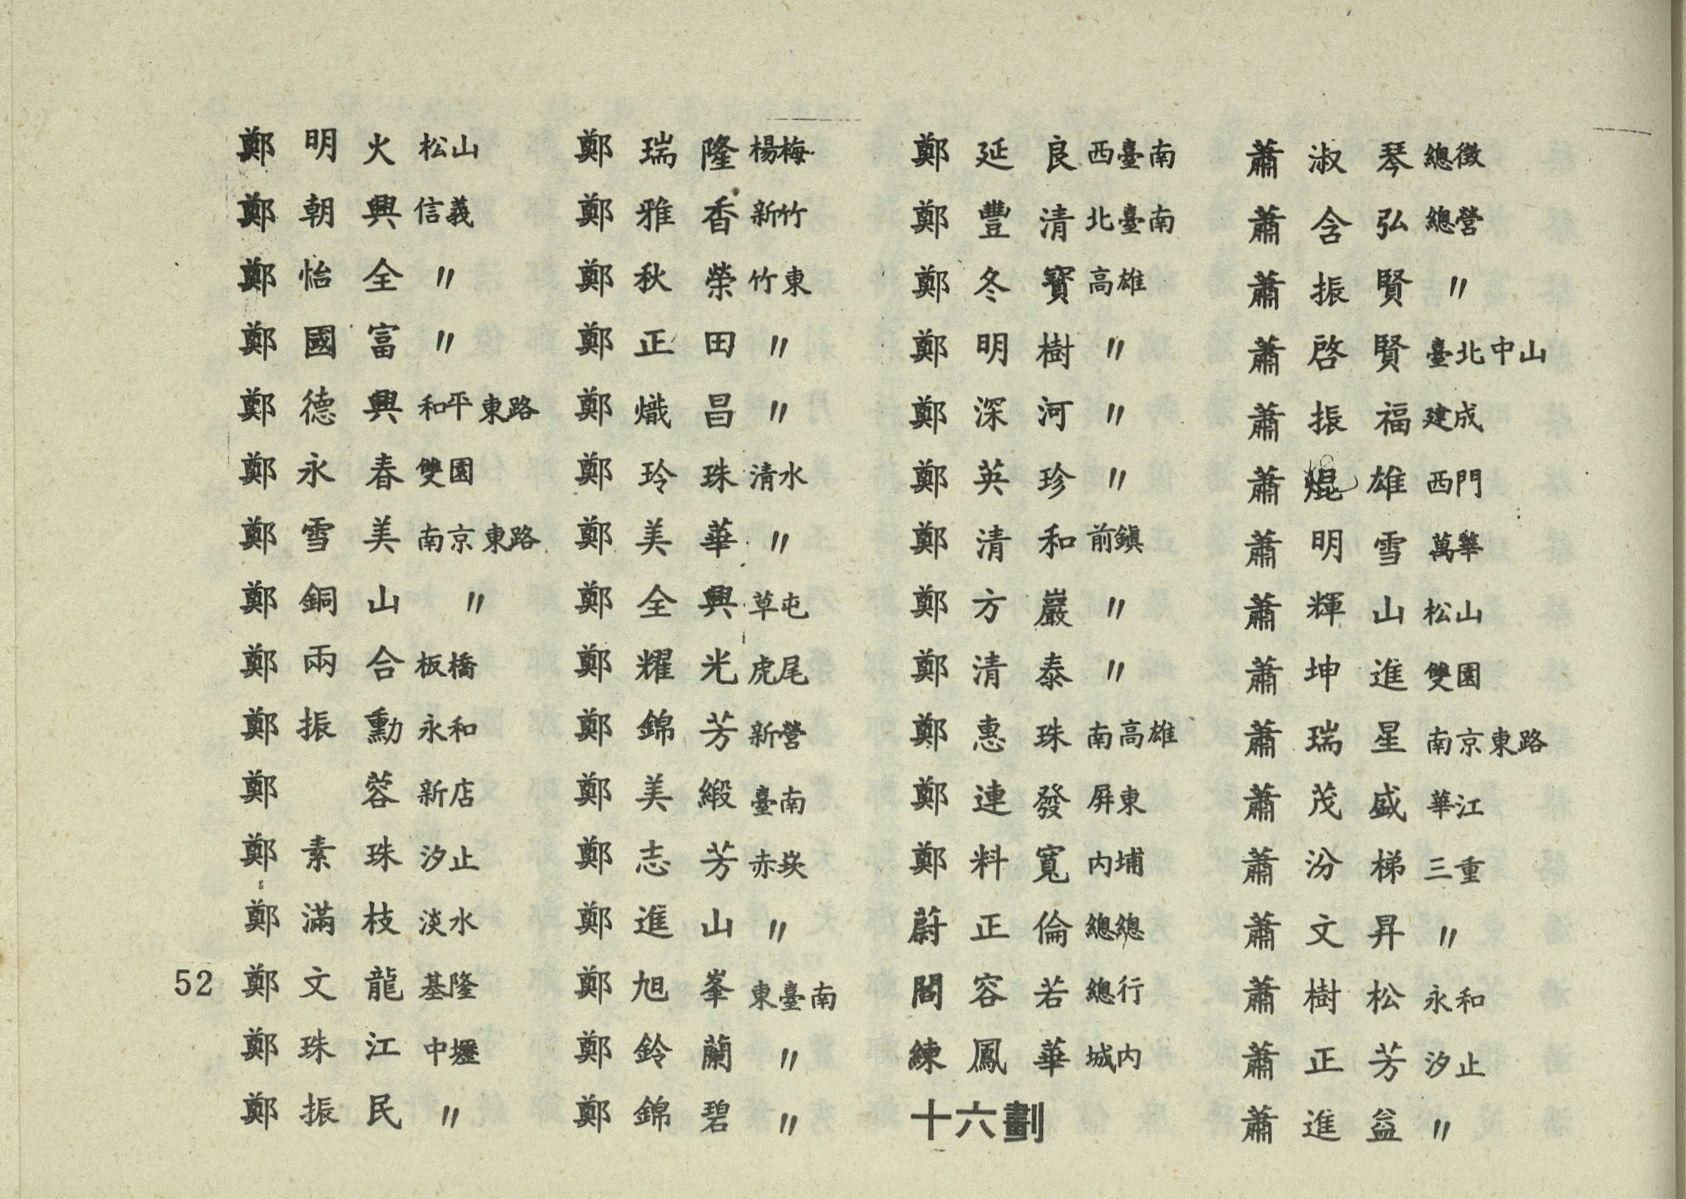 鄭明火 松山
鄭朝興 信義
鄭怡全 〃
鄭國富 〃
鄭德興 和平東路
鄭永春 雙園
鄭雪美 南京東路
鄭銅山 〃
鄭兩合 板橋
鄭振勳 永和
鄭　蓉 新店
鄭素珠 汐止
鄭滿枝 淡水
鄭文龍 基隆
鄭珠江 中壢
鄭振民 〃
鄭瑞隆 楊梅
鄭雅香 新竹
鄭秋榮 竹東
鄭正田 〃
鄭熾昌 〃
鄭玲珠 清水
鄭美華 〃
鄭全興 草屯
鄭耀光 虎尾
鄭錦芳 新營
鄭美緞 臺南
鄭志芳 赤崁
鄭進山 〃
鄭旭峯 東臺南
鄭鈴蘭 〃
鄭錦碧 〃
鄭延良 西臺南
鄭豐清 北臺南
鄭冬寶 高雄
鄭明樹 〃
鄭深河 〃
鄭英珍 〃
鄭清和 前鎮
鄭方巖 〃
鄭清泰 〃
鄭惠珠 南高雄
鄭連發 屏東
鄭料寬 內埔
蔚正倫 總總
閻容若 總行
練鳳華 城內
十六劃
蕭淑琴 總徵
蕭含弘 總營
蕭振賢 〃
蕭啓賢 臺北中山
蕭振福 建成
蕭焜雄 西門
蕭明雪 萬華
蕭輝山 松山
蕭坤進 雙園
蕭瑞星 南京東路
蕭茂盛 華江
蕭汾梯 三重
蕭文昇 〃
蕭樹松 永和
蕭正芳 汐止
蕭進益 〃
52